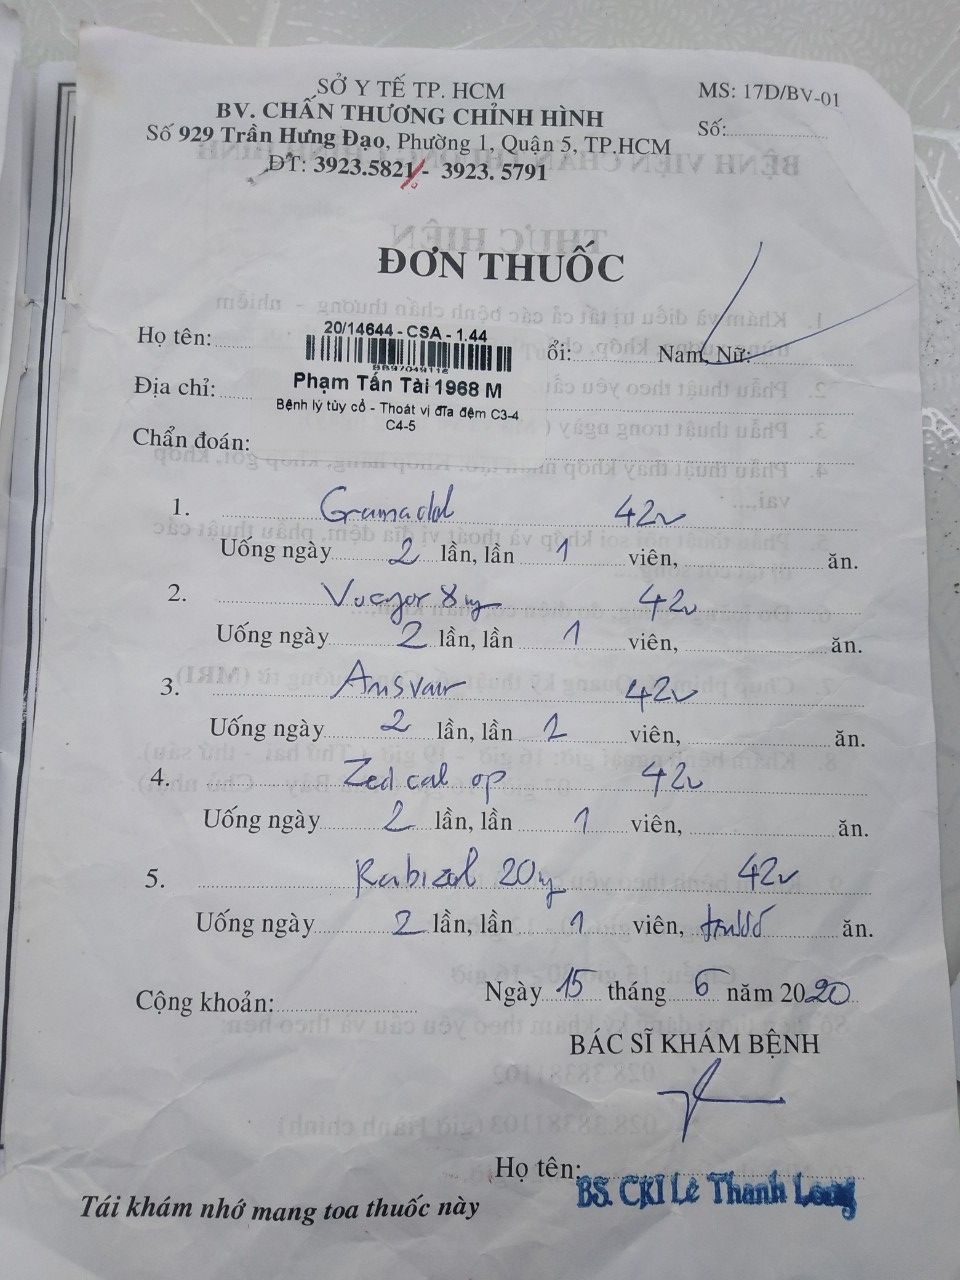 SỞ Y TẾ TP. HCM
MS: 17D/BV-01
BV. CHẤN THƯƠNG CHỈNH HÌNH
Số:
Số 929 Trần Hưng Đạo, Phường 1, Quận 5, TP.HCM
ĐT: 3923.5821 - 3923. 5791
ĐƠN THUỐC
20/14644 - CSA - 1.44
Họ tên: ổi: Nam, Nữ:
Phạm Tấn Tài 1968 M
Địa chỉ:
Bệnh lý tủy cổ - Thoát vị đĩa đệm C3-4
C4-5
Chẩn đoán:
1. Gramadol 42v
Uống ngày 2 lần, lần 1 viên, ăn.
2. 42v
Uống ngày 2 lần, lần 1 viên, ăn.
3. Ansvair 42v
Uống ngày 2 lần, lần 1 viên, ăn.
4. Zedcal op 42v
Uống ngày 2 lần, lần 1 viên, ăn.
5. Rabizol 20 42v
Uống ngày 2 lần, lần 1 viên, ăn.
Ngày 15 tháng 6 năm 2020
Cộng khoản:
BÁC SĨ KHÁM BỆNH
Họ tên: BS. CKI Lê Thanh Long
Tái khám nhớ mang toa thuốc này